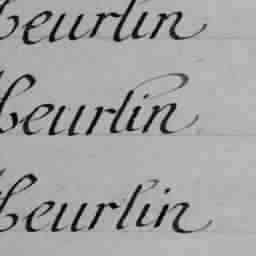 Heurlin
Heurlin
Heurlin